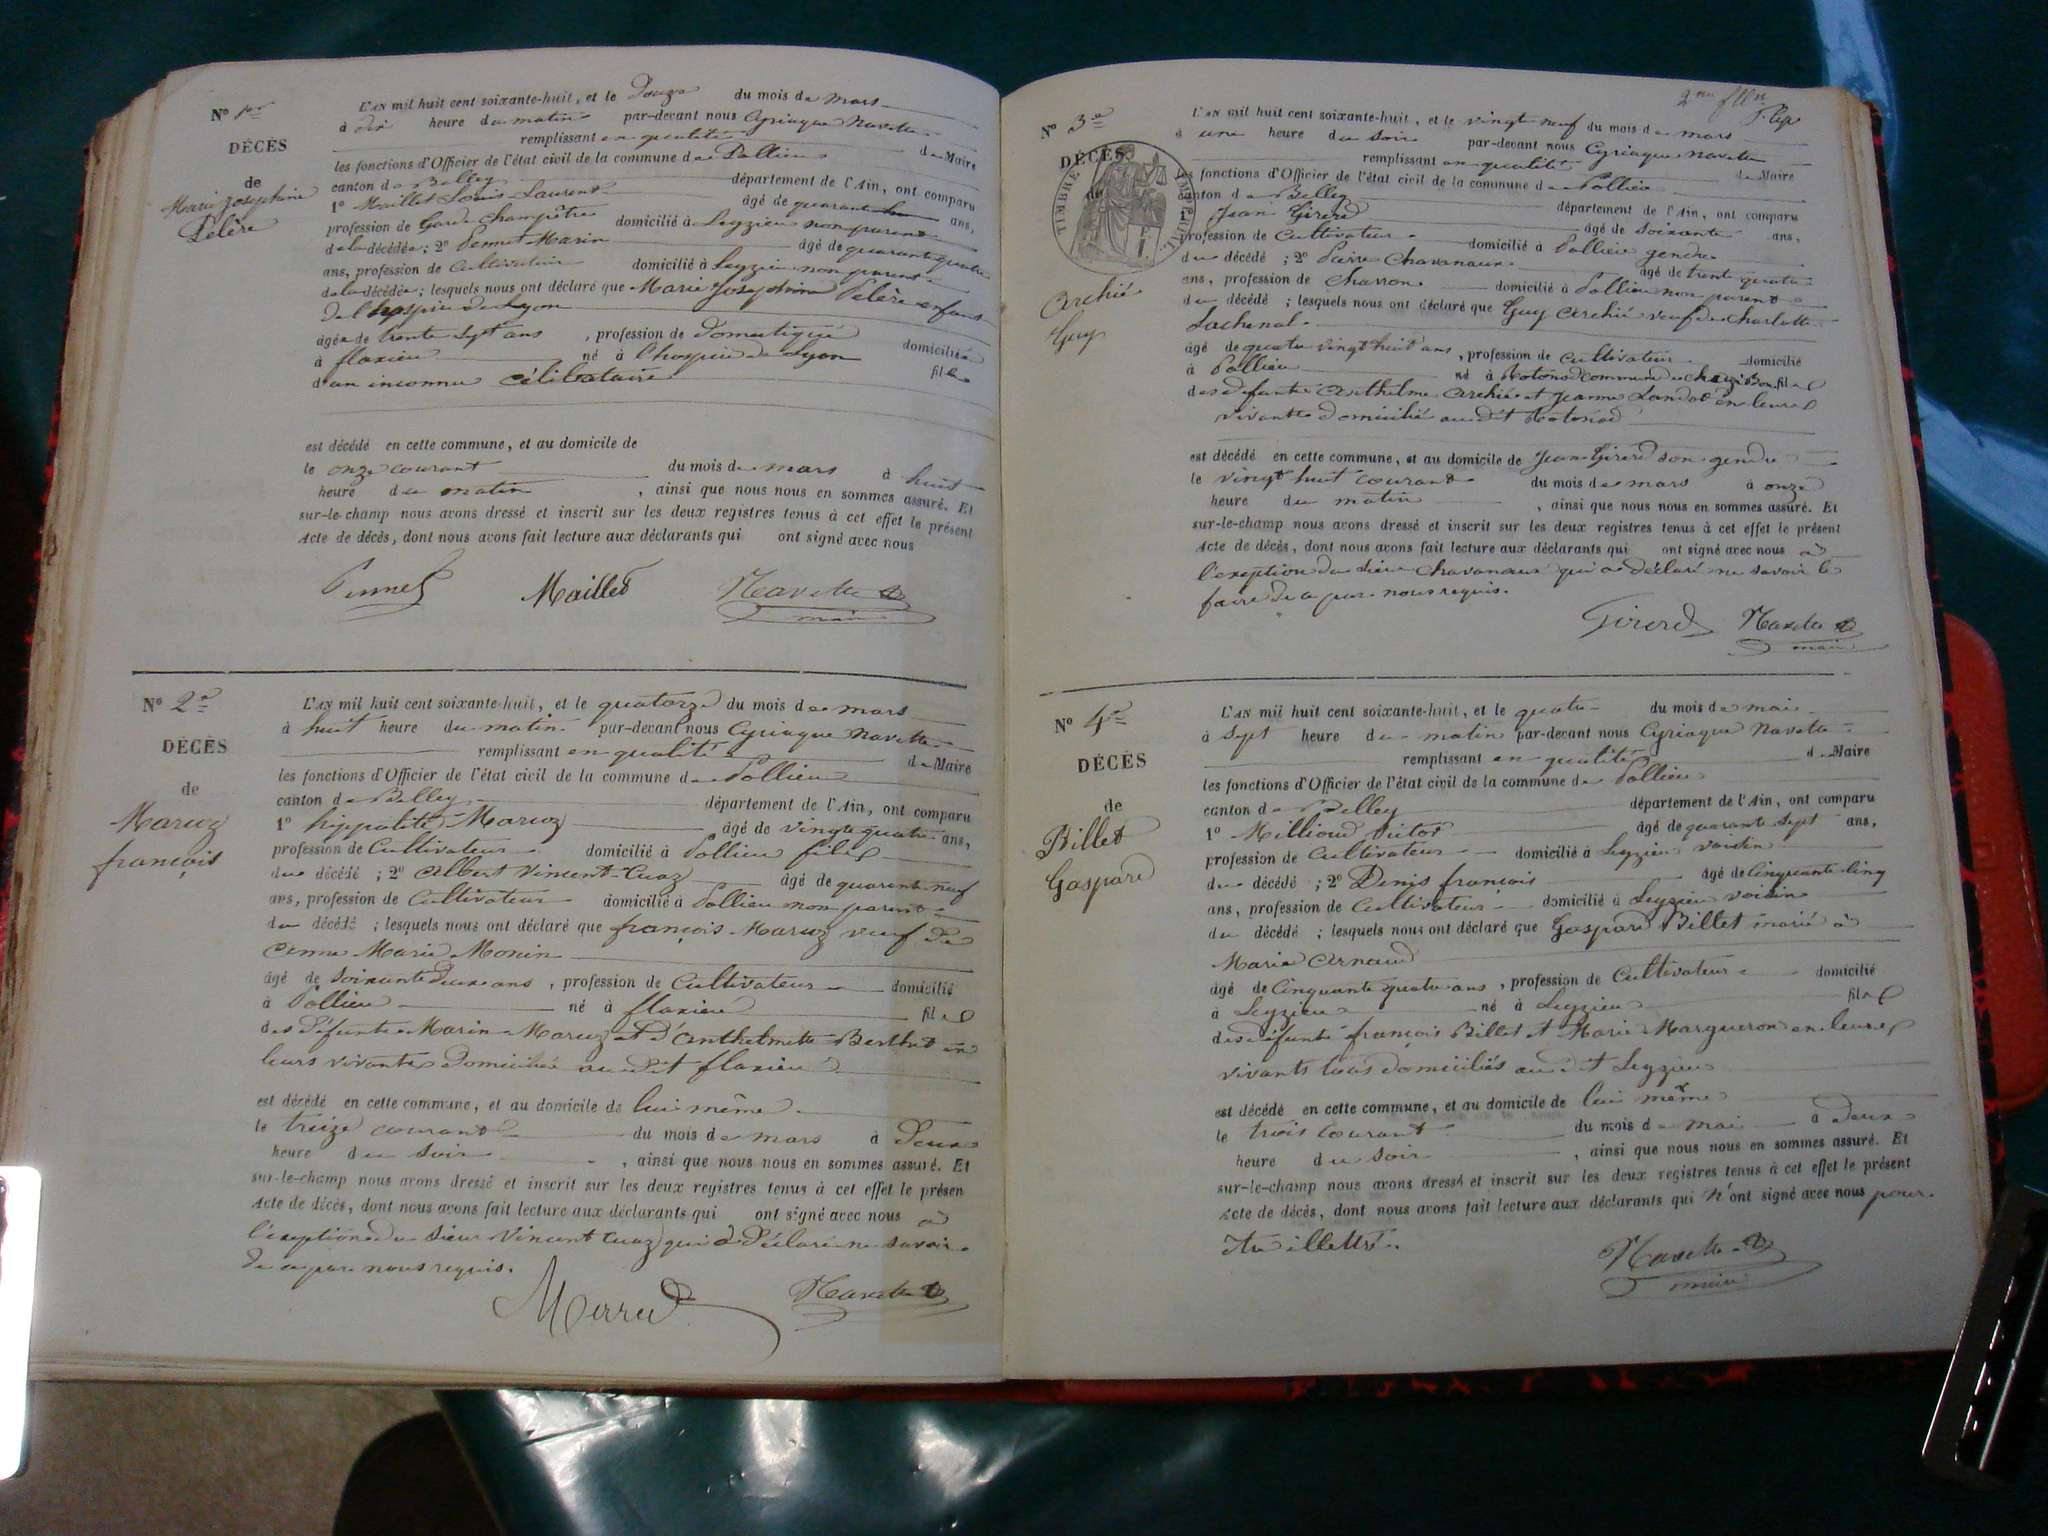 N° 1er
DÉCÈS
de
Marie Josephine
Pelère
L'AN mil huit cent soixante-huit, et le Douze du mois de mars
à dix heure du matin par-devant nous Cyriaque Navette
remplissant en qualité de Maire
les fonctions d'Officier de l'état civil de la commune de Pollieu
canton de Belley département de l'Ain, ont comparu
1° Maillet Louis Laurent âgé de quarante ans,
profession de Garde champêtre domicilié à Leyzieu non parent
de la décédée; 2° Pennet Marin âgé de quarante quatre
ans, profession de Cultivateur domicilié à Leyzieu non parent
de la décédée; lesquels nous ont déclaré que Marie Josephine Pelère enfant
de l'hospice de Lyon
âgée de trente sept ans, profession de domestique domiciliée
à flaxieu né à l'hospice de Lyon fille
d'un inconnu célibataire
est décédé en cette commune, et au domicile de
le onze courant du mois de mars à huit
heure du matin, ainsi que nous nous en sommes assuré. Et
sur-le-champ nous avons dressé et inscrit sur les deux registres tenus à cet effet le présent
Acte de décès, dont nous avons fait lecture aux déclarants qui ont signé avec nous
Pennet Maillet Navette
maire
N° 2e
DÉCÈS
de
Maruz
françois
L'AN mil huit cent soixante-huit, et le quatorze du mois de mars
à huit heure du matin par-devant nous Cyriaque Navette
remplissant en qualité de Maire
les fonctions d'Officier de l'état civil de la commune de Pollieu
canton de Belley département de l'Ain, ont comparu
1° hippolite Maruz âgé de vingt quatre ans,
profession de Cultivateur domicilié à Pollieu fils
du décédé; 2° Albert Vincent-Cuaz âgé de quarante neuf
ans, profession de Cultivateur domicilié à Pollieu non parent
du décédé; lesquels nous ont déclaré que françois Maruz veuf de
Anne Marie Monin
âgé de soixante deux ans, profession de Cultivateur domicilié
à Pollieu né à flaxieu fils
des défunts Marin Maruz et d'Anthelmette Berthet en
leurs vivants domiciliés au dit flaxieu
est décédé en cette commune, et au domicile de lui même
le treize courant du mois de mars à Deux
heure du soir, ainsi que nous nous en sommes assuré. Et
sur-le-champ nous avons dressé et inscrit sur les deux registres tenus à cet effet le présen
Acte de décès, dont nous avons fait lecture aux déclarants qui ont signé avec nous à
l'exeption du sieur Vincent Cuaz qui a déclaré ne savoir
de ce par nous requis.
Navette
2me fllet
N° 3e
DÉCÈS
de
TIMBRE IMPERIAL
Archié
Guy
L'AN mil huit cent soixante-huit, et le vingt neuf du mois de mars
à une heure du soir par-devant nous Cyriaque Navette
remplissant en qualité de Maire
les fonctions d'Officier de l'état civil de la commune de Pollieu
canton de Belley département de l'Ain, ont comparu
1° Jean Girerd âgé de soixante ans,
profession de Cultivateur domicilié à Pollieu gendre
du décédé; 2° Pierre Chavanaux âgé de trente quatre
ans, profession de Charron domicilié à Pollieu non parent
du décédé; lesquels nous ont déclaré que Guy Archié veuf de Charlotte
Lachenal
âgé de quatre vingt huit ans, profession de Cultivateur domicilié
à Pollieu né à commune de fils
des défunts Anthelme Archié et Jeanne en leurs
vivants domiciliés au dit
est décédé en cette commune, et au domicile de Jean Girerd son gendre
le vingt huit courant du mois de mars à onze
heure du matin, ainsi que nous nous en sommes assuré. Et
sur-le-champ nous avons dressé et inscrit sur les deux registres tenus à cet effet le présent
Acte de décès, dont nous avons fait lecture aux déclarants qui ont signé avec nous à
l'exeption du sieur Chavanaux qui a déclaré ne savoir le
faire de ce par nous requis.
Girerd Navette
maire
N° 4e
DÉCÈS
de
Billet
Gaspard
L'AN mil huit cent soixante-huit, et le quatre du mois de mai
à sept heure du matin par-devant nous Cyriaque Navette
remplissant en qualité de Maire
les fonctions d'Officier de l'état civil de la commune de Pollieu
canton de Belley département de l'Ain, ont comparu
1° Millioud Victor âgé de quarante sept ans,
profession de Cultivateur domicilié à Leyzieu voisin
du décédé; 2° Denis françois âgé de Cinquante cinq
ans, profession de Cultivateur domicilié à Leyzieu voisin
du décédé; lesquels nous ont déclaré que Gaspard Billet marié à
Marie Arnaud
âgé de Cinquante quatre ans, profession de Cultivateur domicilié
à Leyzieu né à Leyzieu fils
des défunts françois Billet et Marie Margueron en leurs
vivants tous domiciliés au dit Leyzieu
est décédé en cette commune, et au domicile de lui même
le trois courant du mois de mai à deux
heure du soir, ainsi que nous nous en sommes assuré. Et
sur-le-champ nous avons dressé et inscrit sur les deux registres tenus à cet effet le présent
Acte de décès, dont nous avons fait lecture aux déclarants qui n'ont signé avec nous pour
être illettré.
Navette
maire